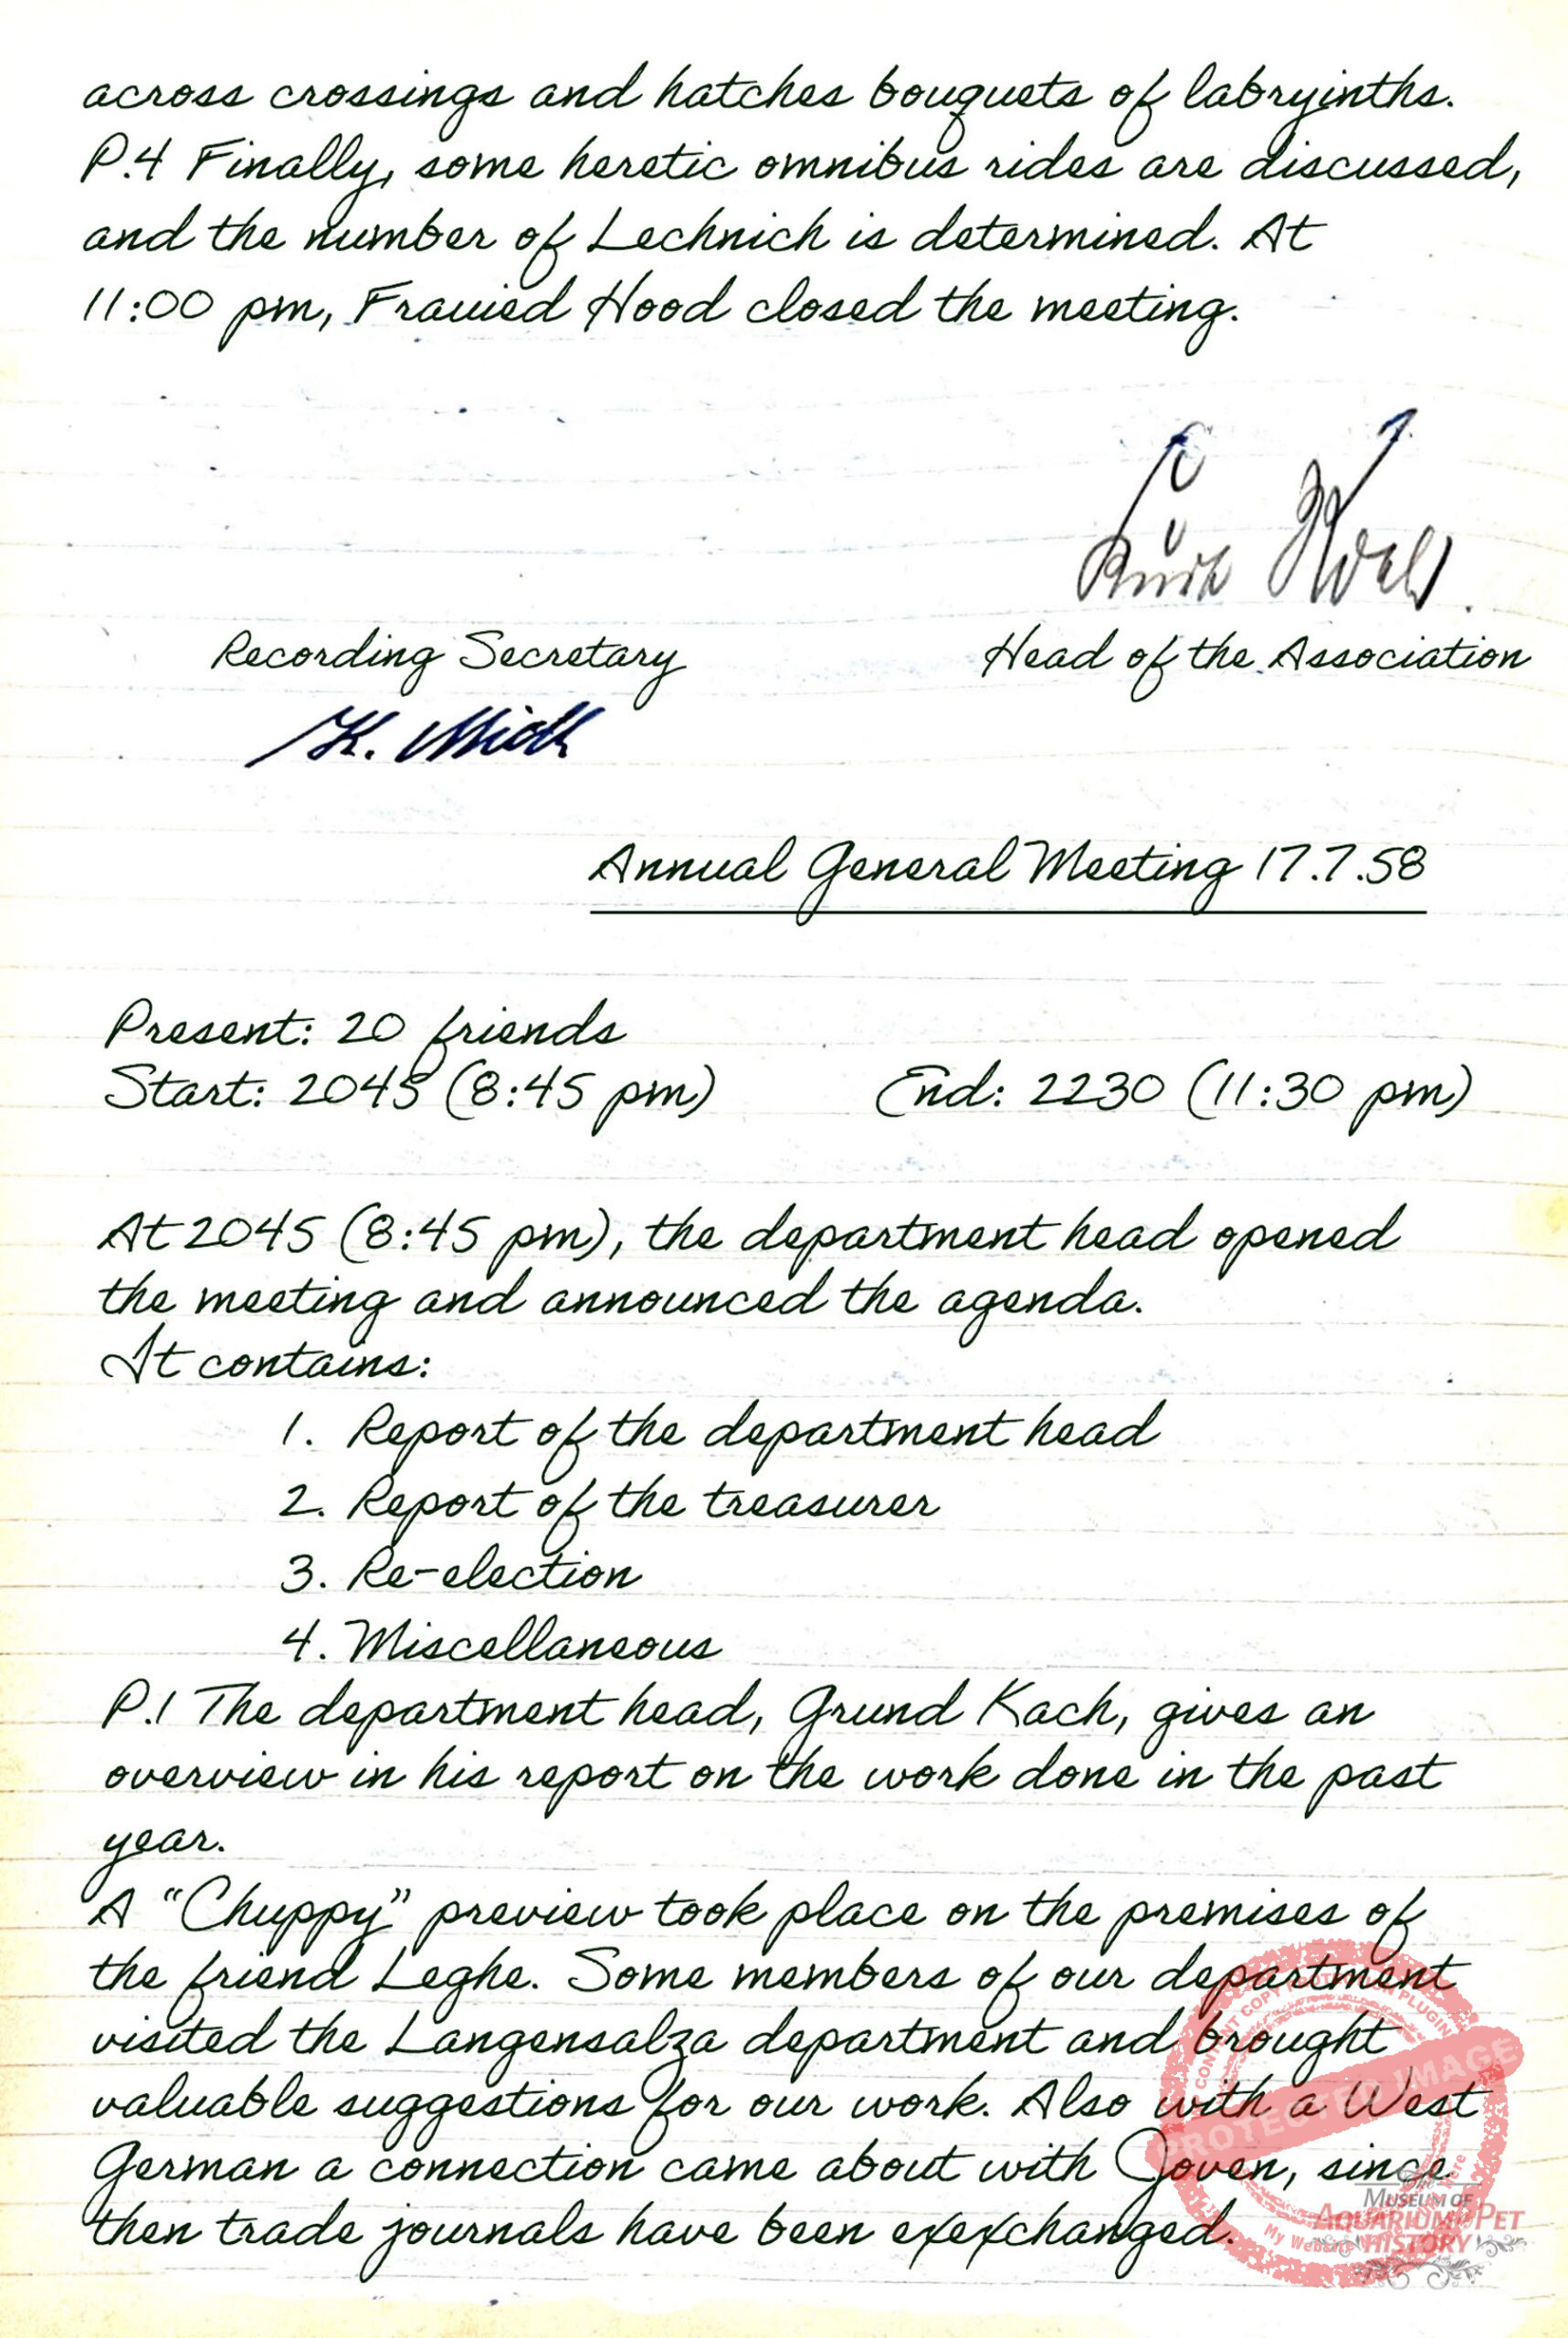 across crossings and hatches bouquets of labryinths.
P.4 Finally, some heretic omnibus rides are discussed,
and the number of Lechnich is determined. At
11:00 pm, Frauied Hood closed the meeting.
Recording Secretary
Head of the Association
K.
Annual General Meeting 17.7.58
Present: 20 friends
Start: 2045 (8:45 pm)
End: 2230 (11:30 pm)
At 2045 (8:45 pm), the department head opened
the meeting and announced the agenda.
It contains:
1. Report of the department head
2. Report of the treasurer
3. Re-election
4. Miscellaneous
P.1 The department head, Grund Kach, gives an
overview in his report on the work done in the past
year.
A “Chuppy” preview took place on the premises of
the friend Leghe. Some members of our department
visited the Langensalza department and brought
valuable suggestions for our work. Also with a West
German a connection came about with Joven, since
then trade journals have been exexchanged.
PROTECTED IMAGE
My Website
The
MUSEUM OF
AQUARIUM & PET
HISTORY